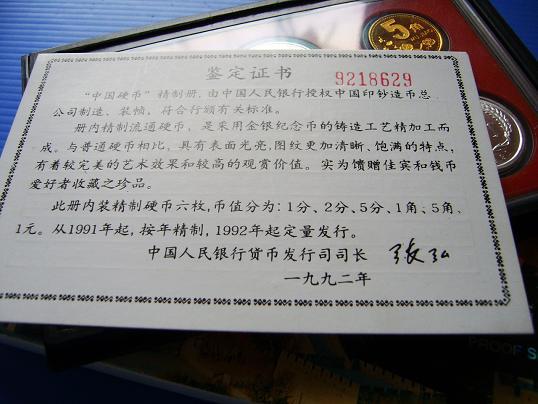 5角
鉴定证书 9218629
“中国硬币”精制册,由中国人民银行授权中国印钞造币总
公司制造、装帧,符合行颁有关标准。
册内精制流通硬币,是采用金银纪念币的铸造工艺精加工而
成。与普通硬币相比,具有表面光亮,图纹更加清晰、饱满的特点,
有着较完美的艺术效果和较高的观赏价值。实为馈赠佳宾和钱币
爱好者收藏之珍品。
此册内装精制硬币六枚,币值分为:1分、2分、5分、1角、5角、
1元。从1991年起,按年精制,1992年起定量发行。
中国人民银行货币发行司司长 张弘
一九九二年
PROOF S